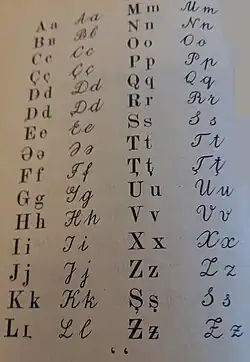 A a A a
B ʙ B b
C c C c
Ç ç Ç ç
D d D d
D d D d
E e E e
Ə ə Ə ə
F f F f
G g G g
H h H h
I i I i
J j J j
K k K k
L ʟ L l
M m M m
N n N n
O o O o
P p P p
Q q Q q
R r R r
S s S s
T t T t
Ţ ţ Ţ ţ
U u U u
V v V v
X x X x
Z z Z z
Ş ş S s
Ƶ ƶ Ƶ ƶ